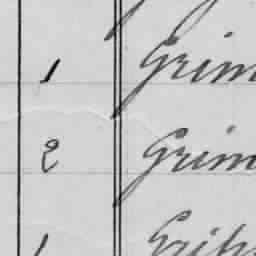 1 Grim
2 Grim
1